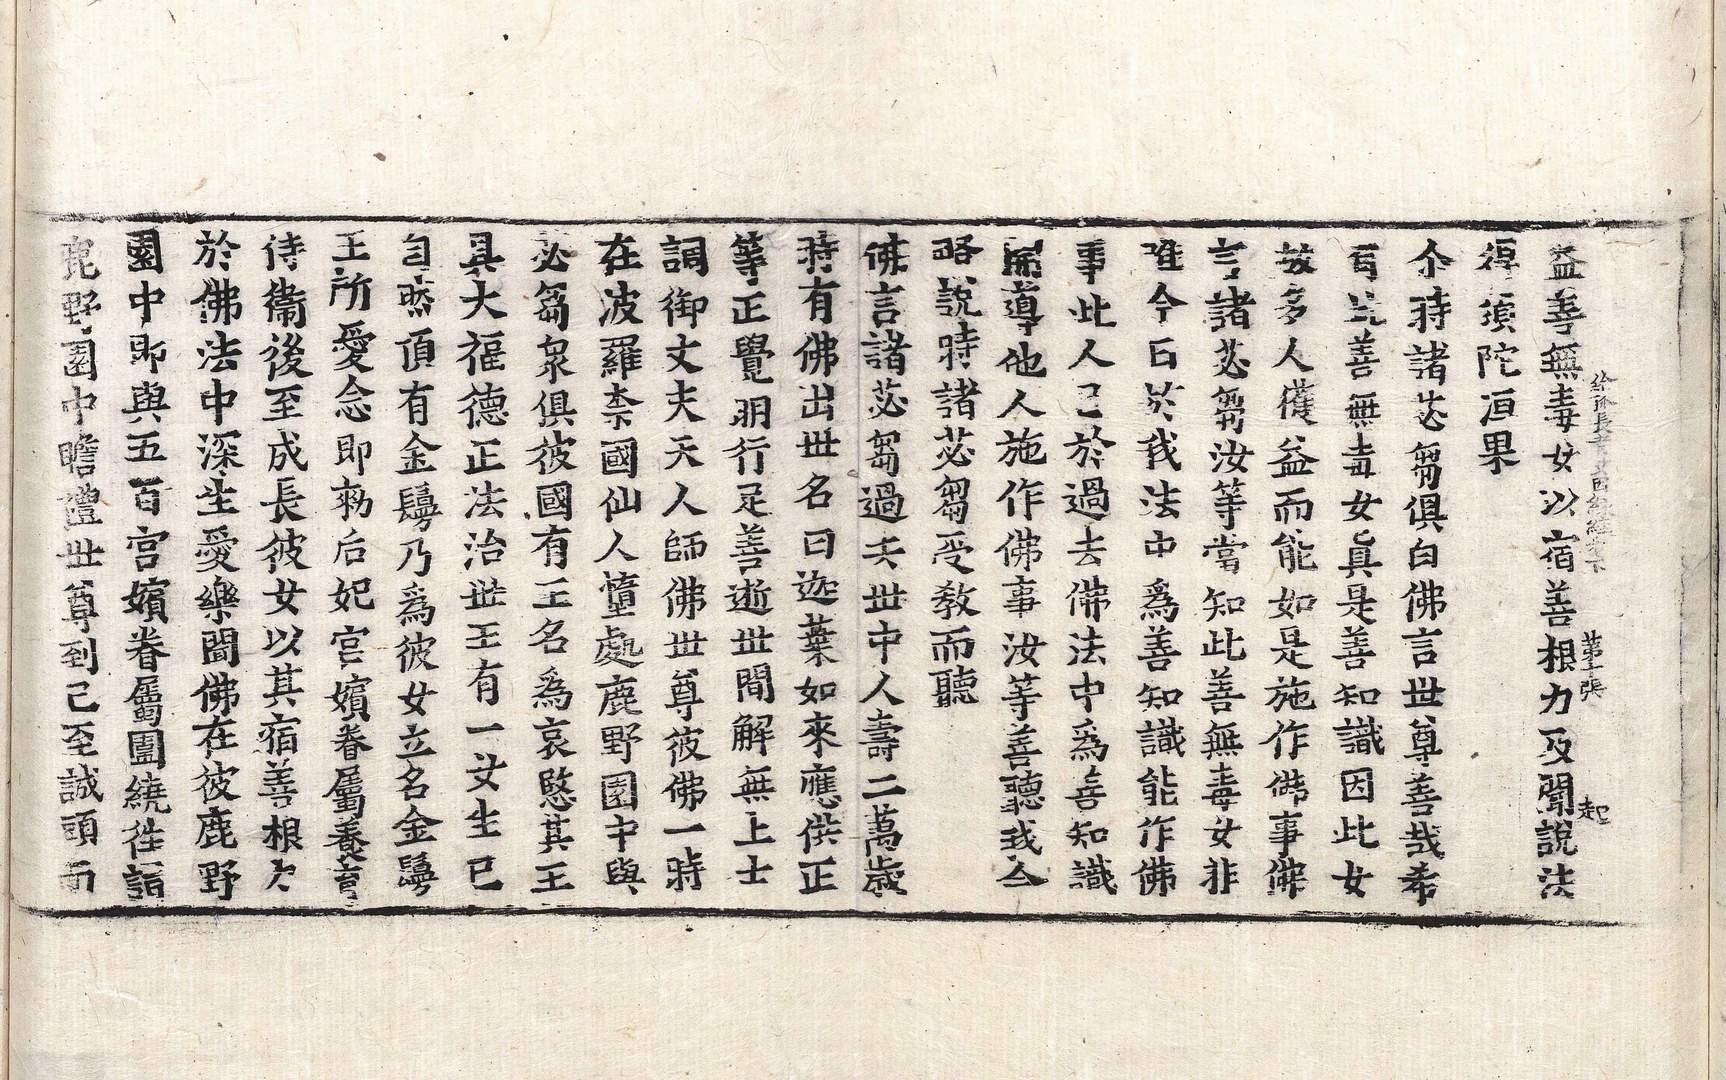 益善無毒女以宿善根力及聞說法
得須陀洹果
尒時諸苾芻俱白佛言世尊善哉希
有此善無毒女真是善知識因此女
故多人獲益而能如是施作佛事佛
言諸苾芻汝等當知此善無毒女非
唯今日於我法中爲善知識能作佛
事此人已於過去佛法中爲善知識
開導他人施作佛事汝等善聽我今
略說時諸苾芻受教而聽
佛言諸苾芻過去世中人壽二萬歲
時有佛出世名曰迦葉如來應供正
等正覺明行足善逝世間解無上士
調御丈夫天人師佛世尊彼佛一時
在波羅柰國仙人墮處鹿野園中與
苾芻衆俱彼國有王名爲哀愍其王
具大福德正法治世王有一女生已
自然頂有金鬘乃爲彼女立名金鬘
王所愛念即勑后妃宮嬪眷屬養育
侍衛後至成長彼女以其宿善根力
於佛法中深生愛樂聞佛在彼鹿野
園中即與五百宮嬪眷屬圍繞徃詣
鹿野園中瞻禮世尊到已至誠頭面
給孤長者女得度因緣經卷下
第十張
起